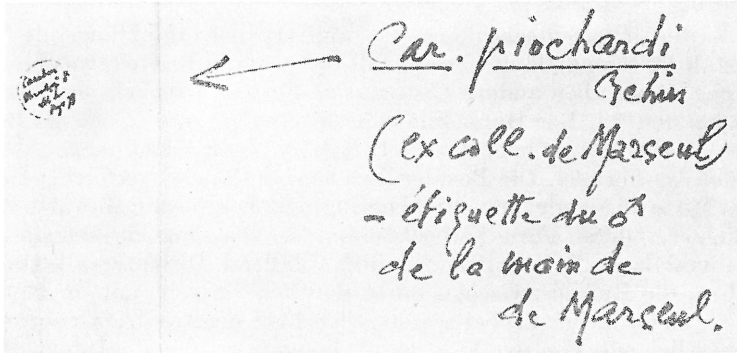 Car. piochardi
Gehin
(ex coll. de Marseul)
- étiquette du ♂
de la main de
de Marseul.